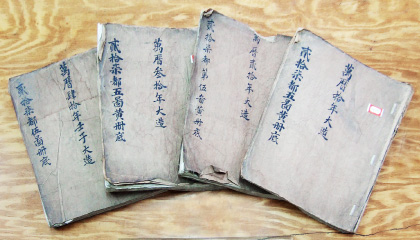 萬曆肆拾年壬子大造
貳拾柒都五啚冊底
萬曆叁拾年大造
貳拾柒都五啚黃冊底
萬曆貳拾年大造
貳拾柒都第伍啚黃冊底
萬曆拾年大造
貳拾柒都五啚黃冊底